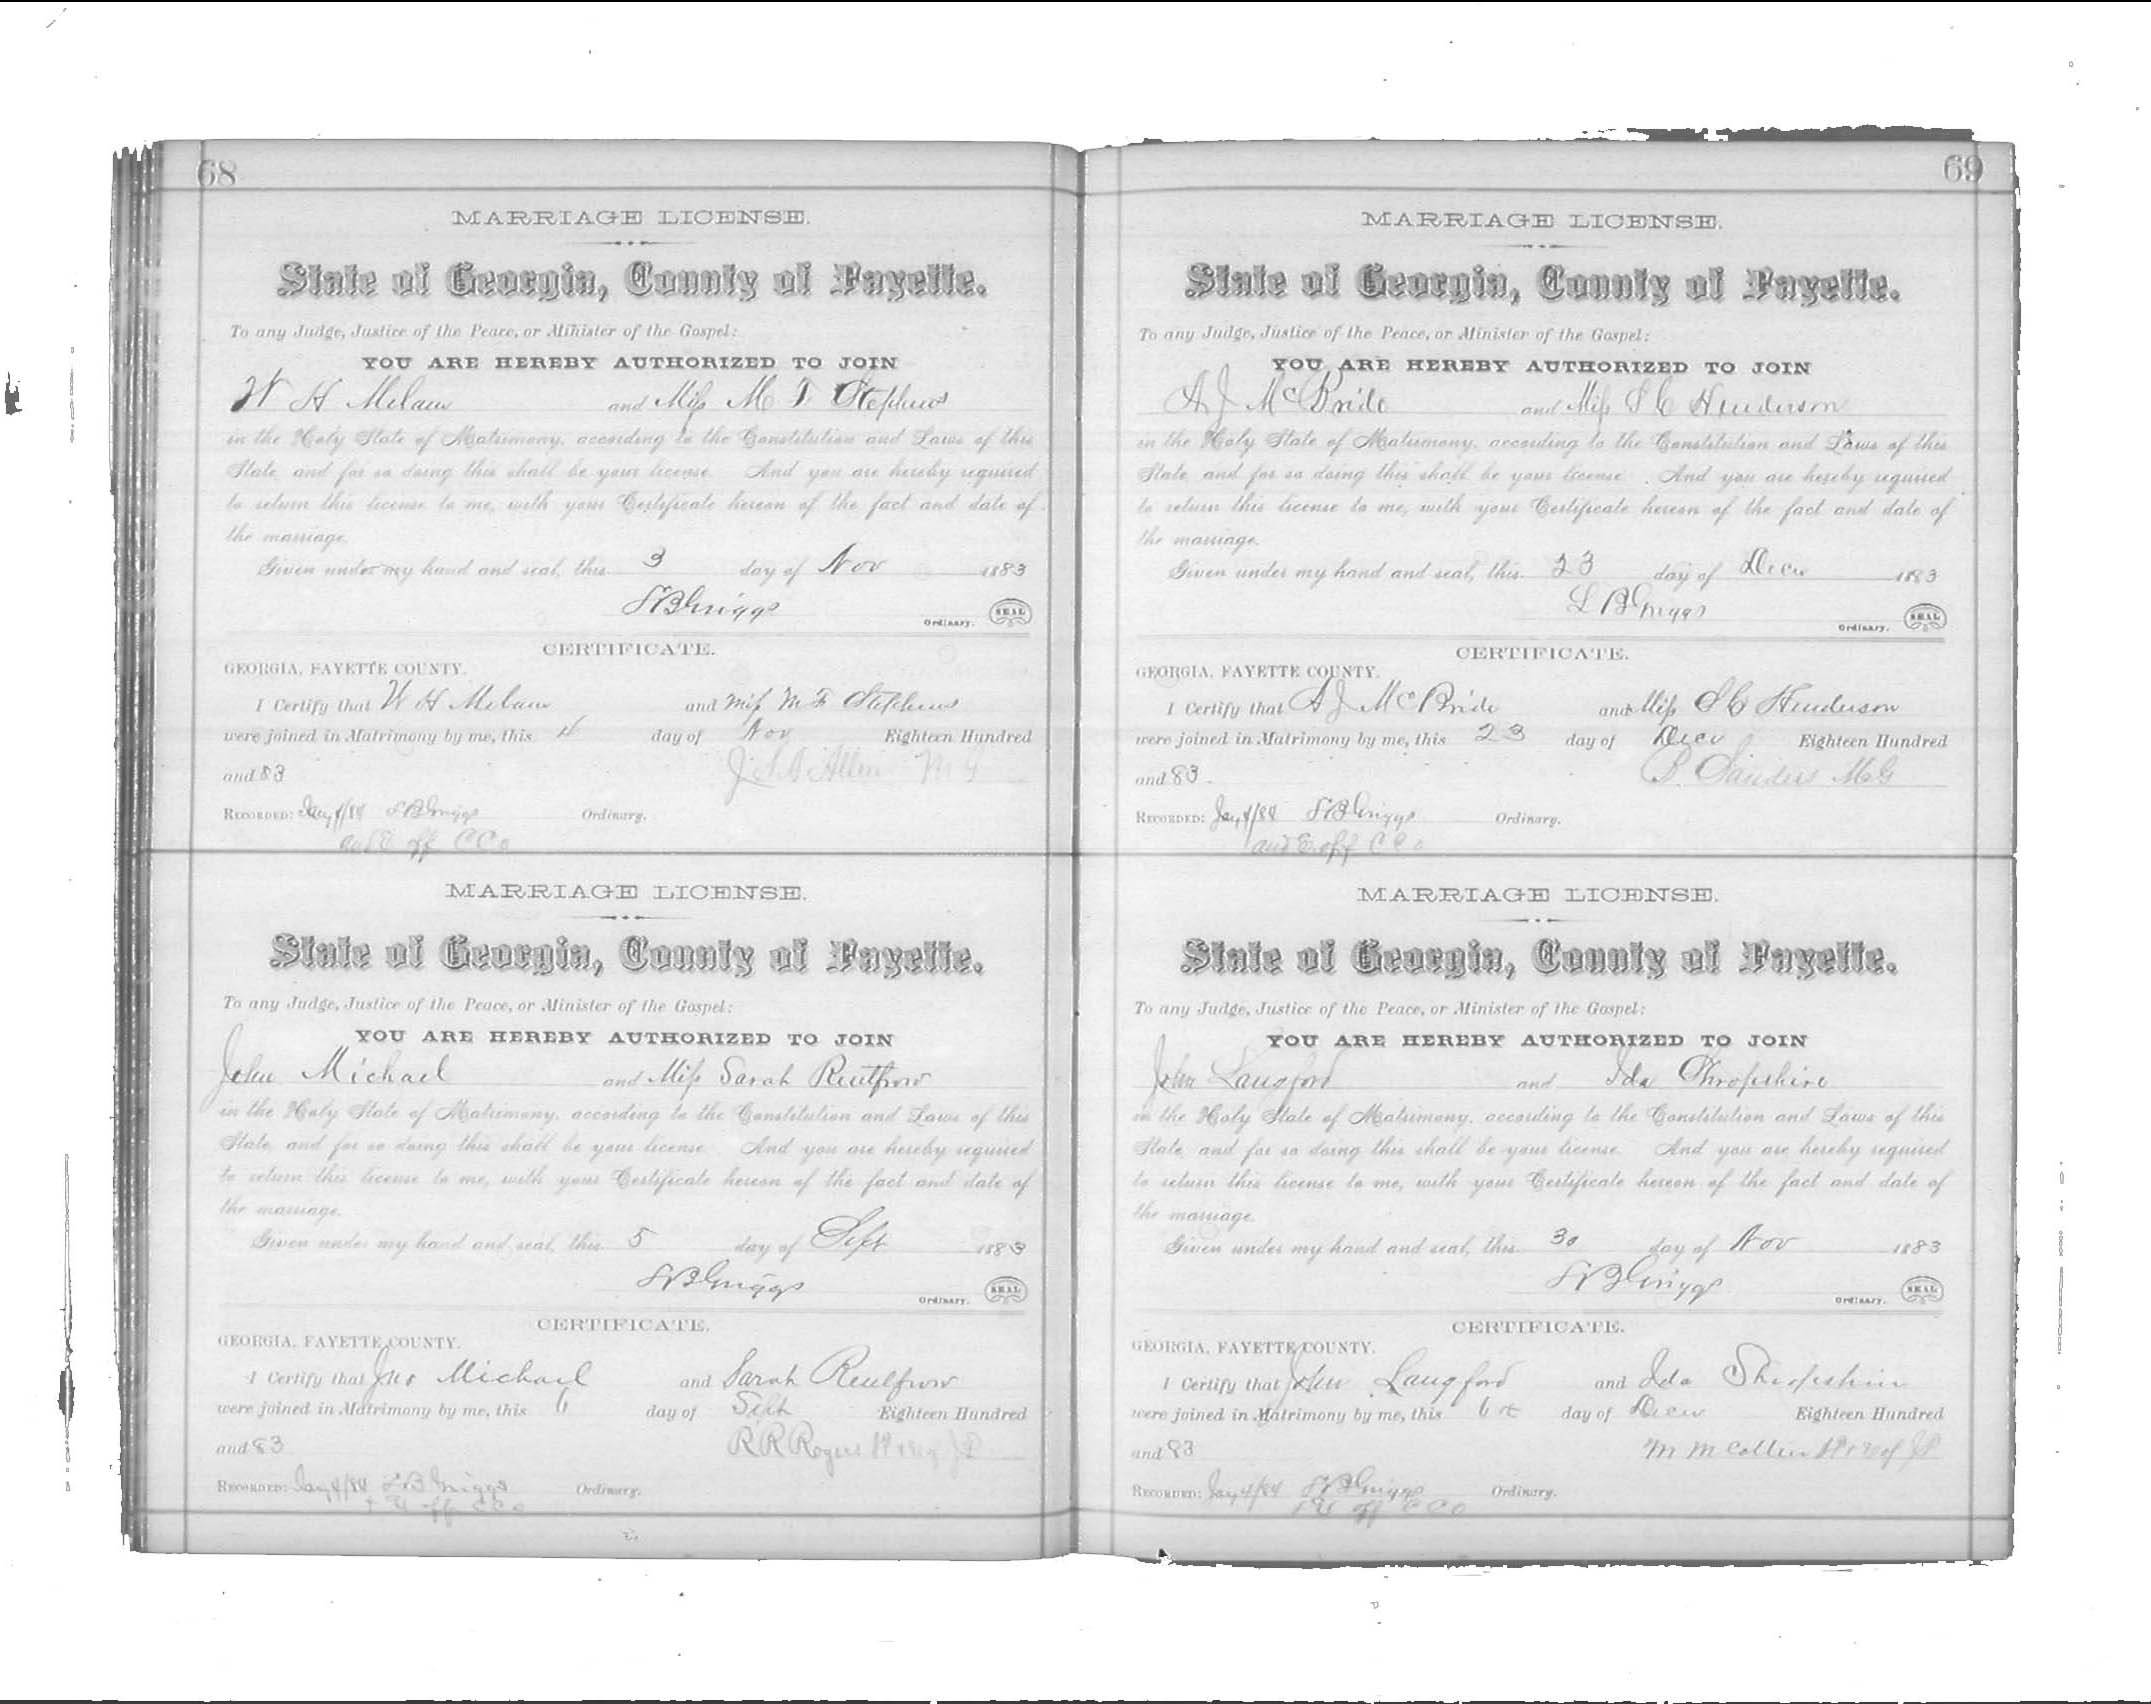 68
MARRIAGE LICENSE.
State of Georgia, County of Fayette.
To any Judge, Justice of the Peace, or Minister of the Gospel:
YOU ARE HEREBY AUTHORIZED TO JOIN
W H Milam and Miss M F Stephens
in the Holy State of Matrimony, according to the Constitution and Laws of this
State, and for so doing this shall be your license. And you are hereby required
to return this license to me, with your Certificate hereon of the fact and date of
the marriage.
Given under my hand and seal, this 3 day of Nov 1883
L B Griggs
Ordinary. SEAL
CERTIFICATE.
GEORGIA, FAYETTE COUNTY.
I Certify that W H Milam and Miss M F Stephens
were joined in Matrimony by me, this 4 day of Nov Eighteen Hundred
and 83 Allen M G
RECORDED: Jany 4/84 L B Griggs Ordinary.
and E off C C O
MARRIAGE LICENSE.
State of Georgia, County of Fayette.
To any Judge, Justice of the Peace, or Minister of the Gospel:
YOU ARE HEREBY AUTHORIZED TO JOIN
John Michael and Miss Sarah Rentfrow
in the Holy State of Matrimony, according to the Constitution and Laws of this
State, and for so doing this shall be your license. And you are hereby required
to return this license to me, with your Certificate hereon of the fact and date of
the marriage.
Given under my hand and seal, this 5 day of Sept 1883
L B Griggs
Ordinary. SEAL
CERTIFICATE.
GEORGIA, FAYETTE COUNTY.
I Certify that Jno Michael and Sarah Rentfrow
were joined in Matrimony by me, this 6 day of Sept Eighteen Hundred
and 83 R R Rogers
RECORDED: Jany 4/84 L B Griggs Ordinary.
+ E off C C O
69
MARRIAGE LICENSE.
State of Georgia, County of Fayette.
To any Judge, Justice of the Peace, or Minister of the Gospel:
YOU ARE HEREBY AUTHORIZED TO JOIN
A J McBride and Miss S C Henderson
in the Holy State of Matrimony, according to the Constitution and Laws of this
State, and for so doing this shall be your license. And you are hereby required
to return this license to me, with your Certificate hereon of the fact and date of
the marriage.
Given under my hand and seal, this 23 day of Decr 1883
L B Griggs
Ordinary. SEAL
CERTIFICATE.
GEORGIA, FAYETTE COUNTY.
I Certify that A J McBride and Miss S C Henderson
were joined in Matrimony by me, this 23 day of Decr Eighteen Hundred
and 83. B. Sanders M G
RECORDED: Jany 4/84 L B Griggs Ordinary.
and E off C C O
MARRIAGE LICENSE.
State of Georgia, County of Fayette.
To any Judge, Justice of the Peace, or Minister of the Gospel:
YOU ARE HEREBY AUTHORIZED TO JOIN
John Langford and Ida Shropshire
in the Holy State of Matrimony, according to the Constitution and Laws of this
State, and for so doing this shall be your license. And you are hereby required
to return this license to me, with your Certificate hereon of the fact and date of
the marriage.
Given under my hand and seal, this 30 day of Nov 1883
L B Griggs
Ordinary. SEAL
CERTIFICATE.
GEORGIA, FAYETTE COUNTY.
I Certify that John Langford and Ida Shropshire
were joined in Matrimony by me, this 6th day of Decr Eighteen Hundred
and 83 M M
RECORDED: Jany 4/84 L B Griggs Ordinary.
+ E off C C O